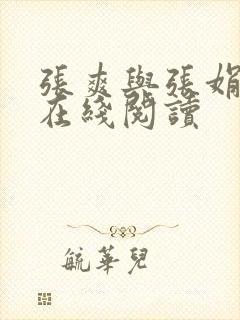 張爽與張娟
在綫閱讀
毓華兒